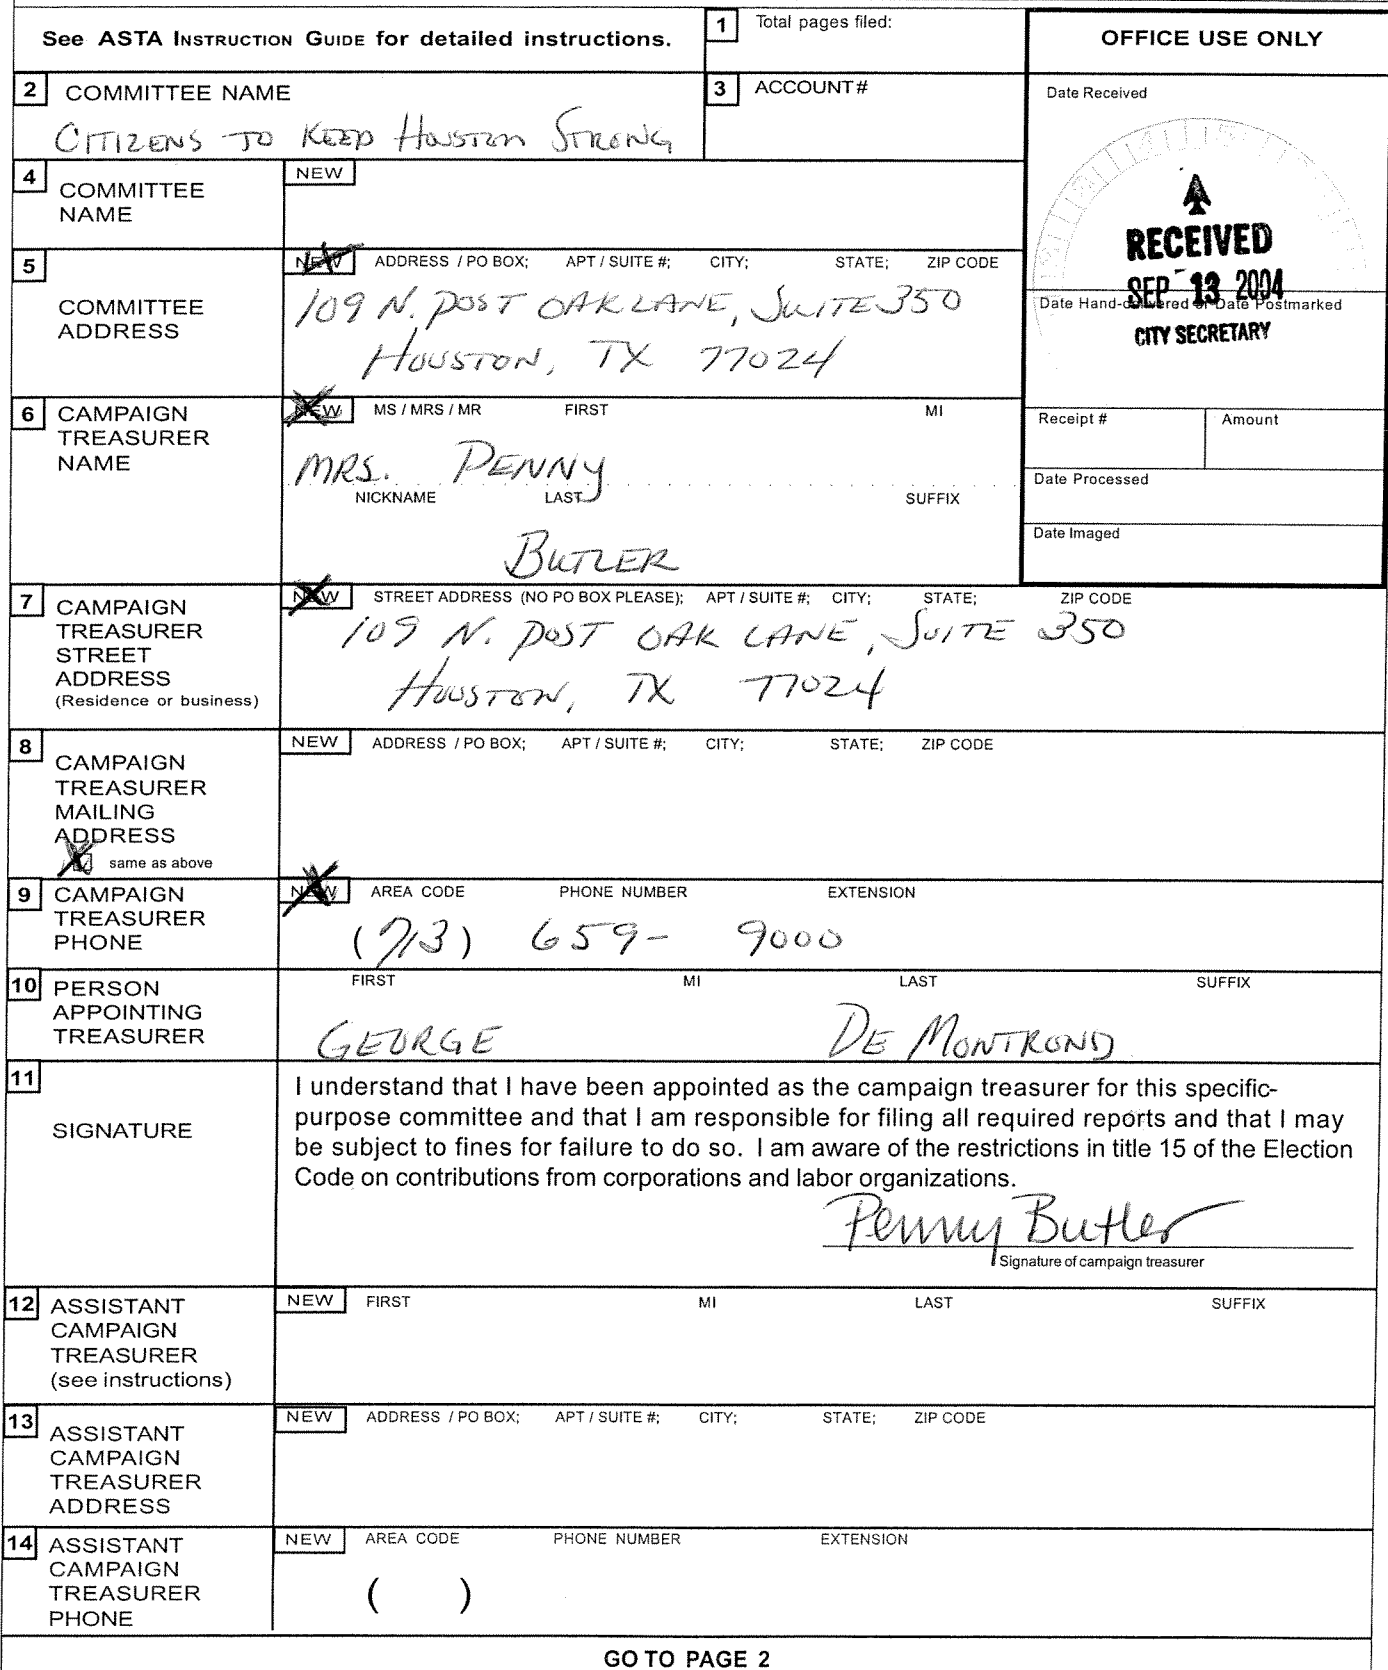 See ASTA INSTRUCTION GUIDE for detailed instructions.
1 Total pages filed:
OFFICE USE ONLY
2 COMMITTEE NAME
CITIZENS TO KEEP HOUSTON STRONG
3 ACCOUNT#
Date Received
RECEIVED
SEP 13 2004
Date Hand-delivered or Date Postmarked
CITY SECRETARY
Receipt # Amount
Date Processed
Date Imaged
4 COMMITTEE
NAME
NEW
5 COMMITTEE
ADDRESS
NEW ADDRESS / PO BOX; APT / SUITE #; CITY; STATE; ZIP CODE
109 N. POST OAK LANE, SUITE 350
HOUSTON, TX 77024
6 CAMPAIGN
TREASURER
NAME
NEW MS / MRS / MR FIRST MI
MRS. PENNY
NICKNAME LAST SUFFIX
BUTLER
7 CAMPAIGN
TREASURER
STREET
ADDRESS
(Residence or business)
NEW STREET ADDRESS (NO PO BOX PLEASE); APT / SUITE #; CITY; STATE; ZIP CODE
109 N. POST OAK LANE, SUITE 350
HOUSTON, TX 77024
8 CAMPAIGN
TREASURER
MAILING
ADDRESS
same as above
NEW ADDRESS / PO BOX; APT / SUITE #; CITY; STATE; ZIP CODE
9 CAMPAIGN
TREASURER
PHONE
NEW AREA CODE PHONE NUMBER EXTENSION
(713) 659- 9000
10 PERSON
APPOINTING
TREASURER
FIRST MI LAST SUFFIX
GEORGE DE MONTROND
11 SIGNATURE
I understand that I have been appointed as the campaign treasurer for this specific-
purpose committee and that I am responsible for filing all required reports and that I may
be subject to fines for failure to do so. I am aware of the restrictions in title 15 of the Election
Code on contributions from corporations and labor organizations.
Penny Butler
Signature of campaign treasurer
12 ASSISTANT
CAMPAIGN
TREASURER
(see instructions)
NEW FIRST MI LAST SUFFIX
13 ASSISTANT
CAMPAIGN
TREASURER
ADDRESS
NEW ADDRESS / PO BOX; APT / SUITE #; CITY; STATE; ZIP CODE
14 ASSISTANT
CAMPAIGN
TREASURER
PHONE
NEW AREA CODE PHONE NUMBER EXTENSION
( )
GO TO PAGE 2